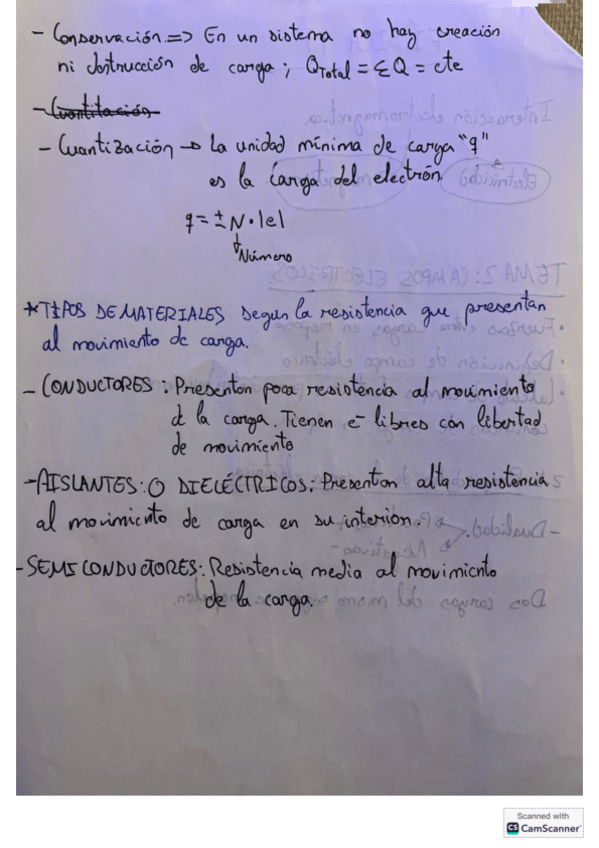 - Conservación => En un sistema no hay creación
ni destrucción de carga ; QTotal = ΣQ = cte
- Cuantitación
- Cuantización → la unidad mínima de carga "q"
es la carga del electrón
q = ± N · |e|
↓
Número
* TIPOS DE MATERIALES según la resistencia que presentan
al movimiento de carga.
- CONDUCTORES : Presentan poca resistencia al movimiento
d la carga. Tienen e- libres con libertad
de movimiento
- AISLANTES: O DIELÉCTRICOS: Presentan alta resistencia
al movimiento de carga en su interior.
- SEMICONDUCTORES: Resistencia media al movimiento
de la carga.
Scanned with
CS CamScanner